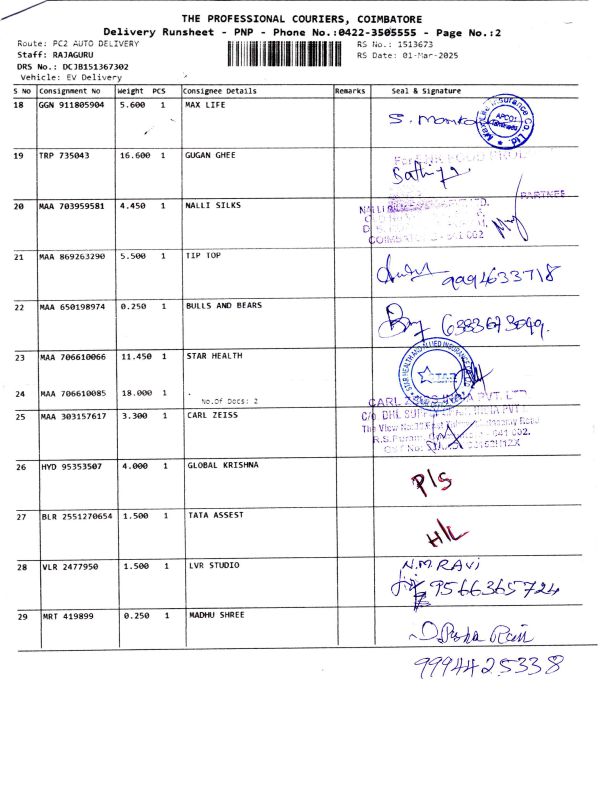 THE PROFESSIONAL COURIERS, COIMBATORE
Delivery Runsheet - PNP - Phone No.:0422-3505555 - Page No.:2
Route: PC2 AUTO DELIVERY RS No.: 1513673
Staff: RAJAGURU RS Date: 01-Mar-2025
DRS No.: DCJB151367302
Vehicle: EV Delivery
S No Consignment No Weight PCS Consignee Details Remarks Seal & Signature
18 GGN 911805904 5.600 1 MAX LIFE
S. Monika
19 TRP 735043 16.600 1 GUGAN GHEE
PARTNER
20 MAA 703959581 4.450 1 NALLI SILKS
COIMBATORE - 641 002
21 MAA 869263290 5.500 1 TIP TOP
9994633718
22 MAA 650198974 0.250 1 BULLS AND BEARS
6383673049.
23 MAA 706610066 11.450 1 STAR HEALTH
STAR HEALTH AND ALLIED INSURANCE
STAR
24 MAA 706610085 18.000 1 .
No.Of Docs: 2
CARL ZEISS INDIA PVT. LTD
25 MAA 303157617 3.300 1 CARL ZEISS
C/o DHL SUPPLY CHAIN INDIA PVT L
R.S.Puram
26 HYD 95353507 4.000 1 GLOBAL KRISHNA
P/S
27 BLR 2551270654 1.500 1 TATA ASSEST
H/L
28 VLR 2477950 1.500 1 LVR STUDIO
N.M RAVI
9566365724
29 MRT 419899 0.250 1 MADHU SHREE
9994425338